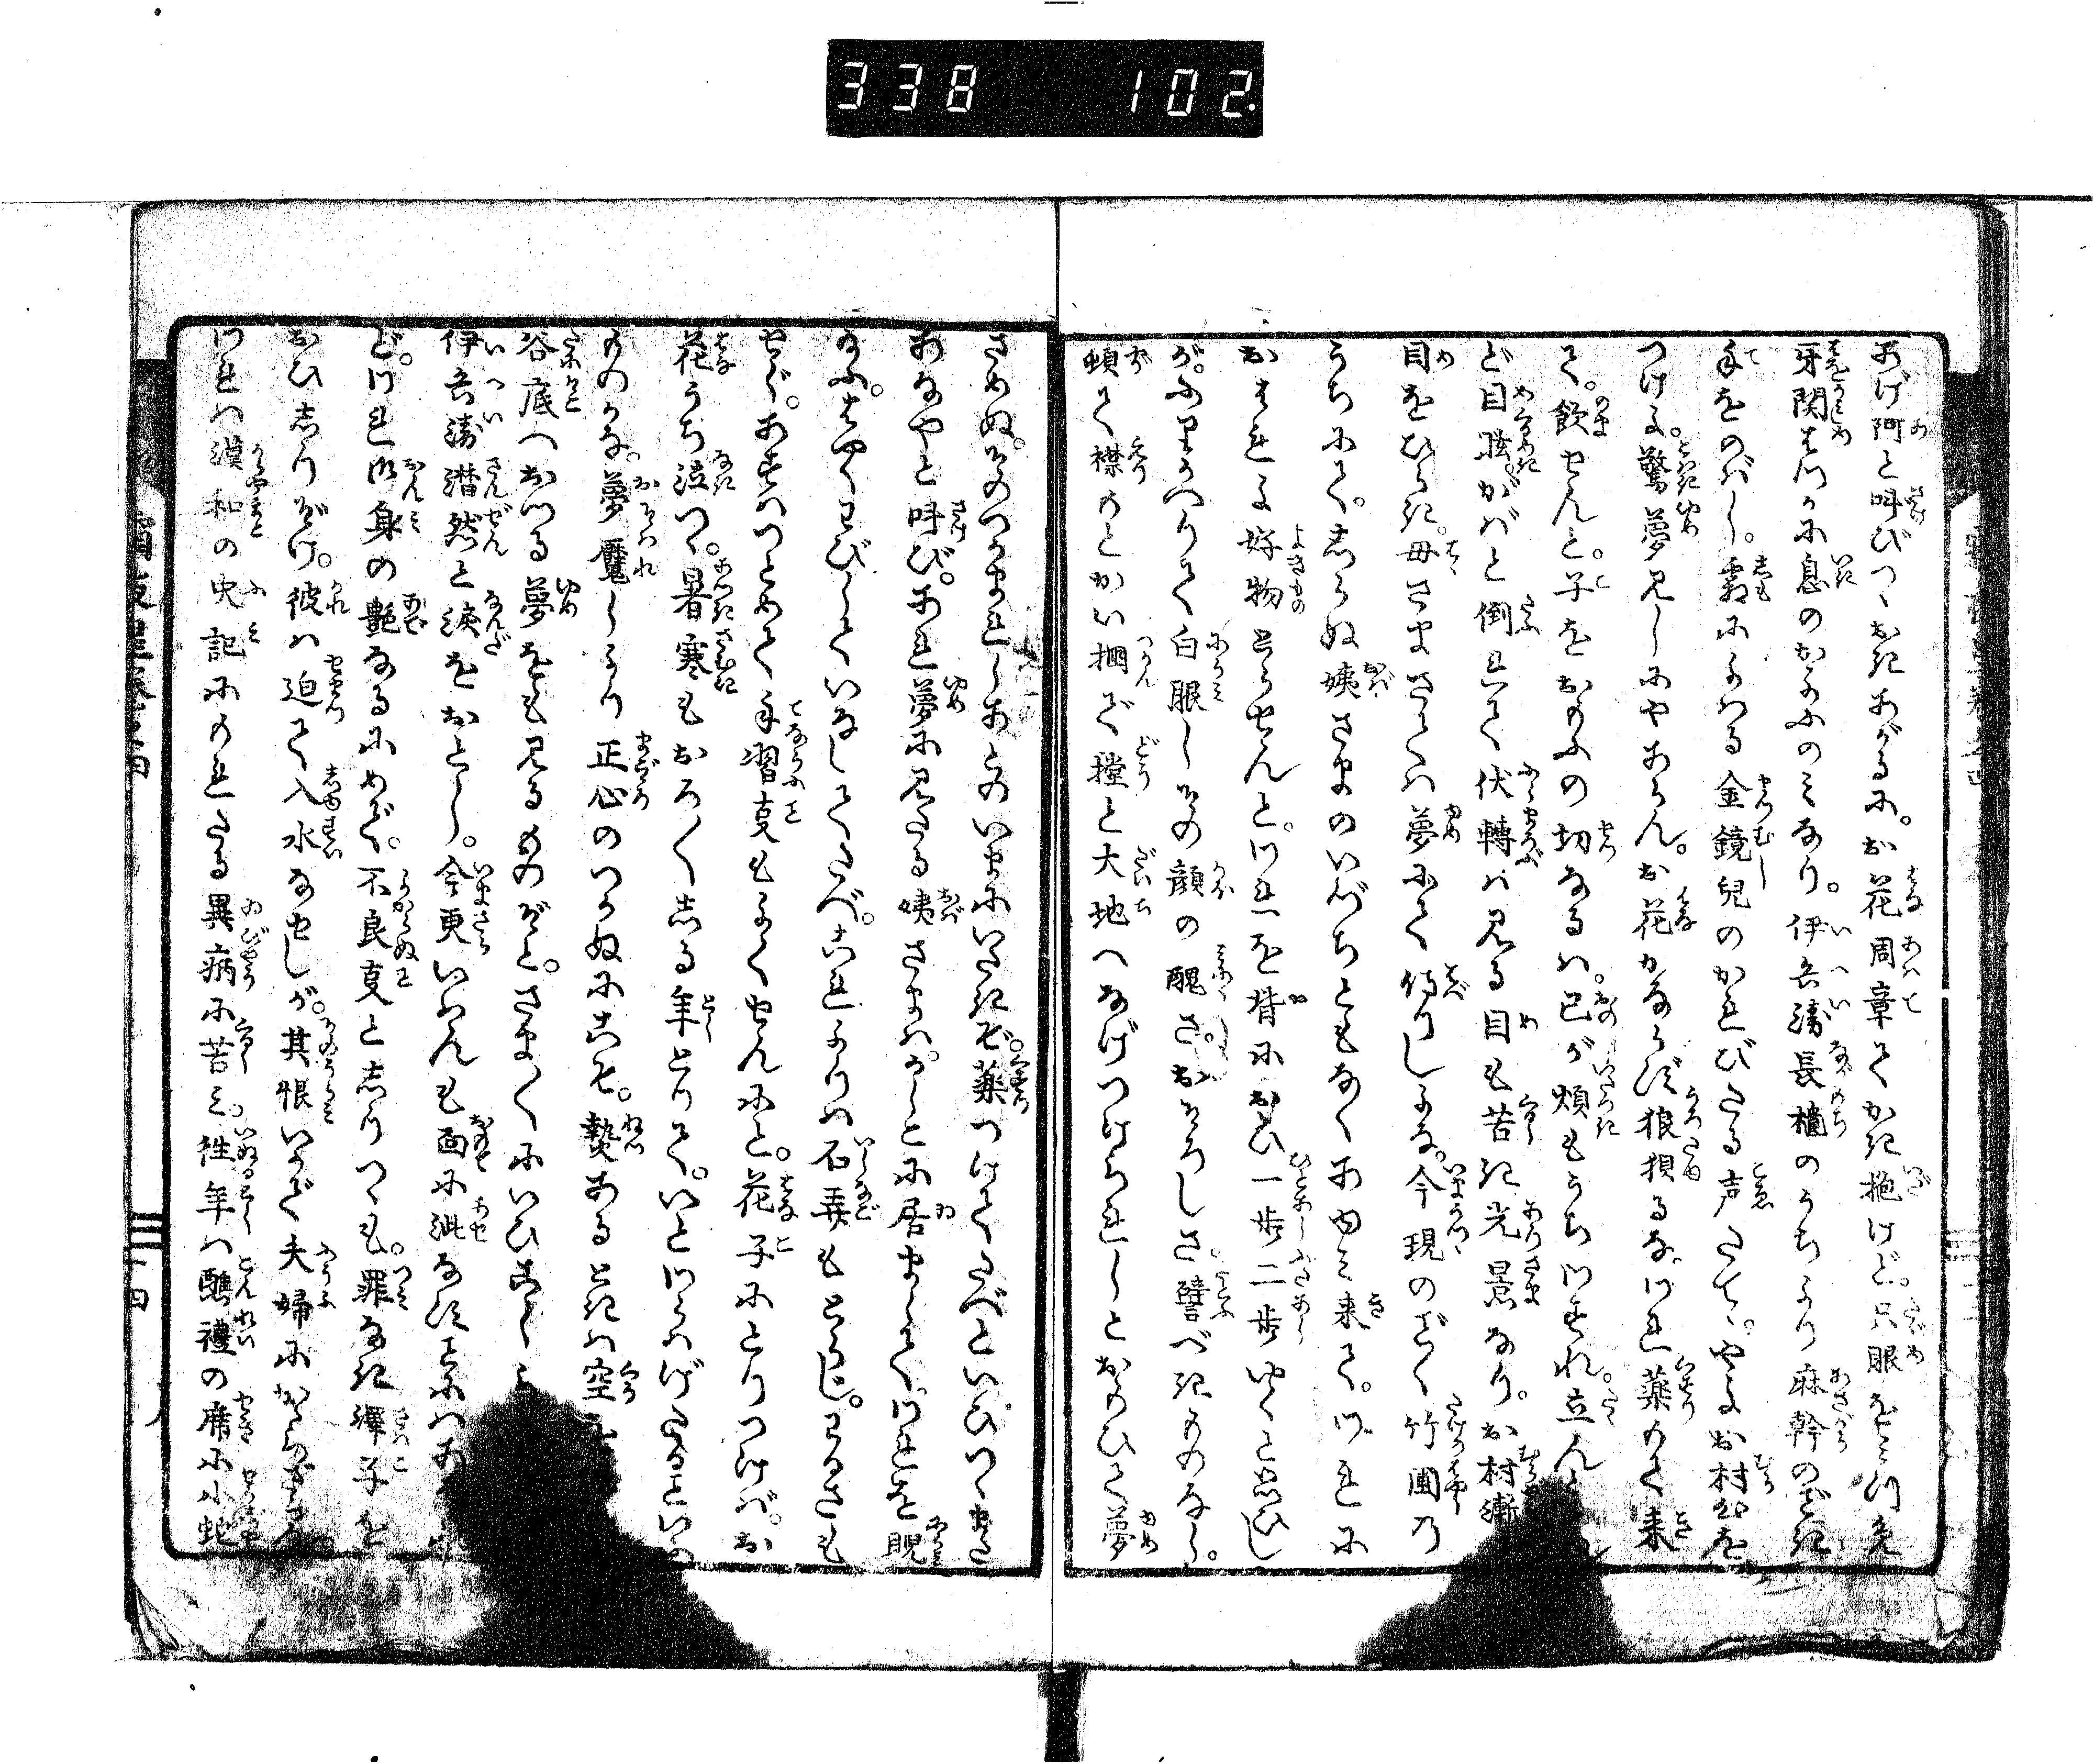 338 102
あげ阿と叫びつゝおきあがるに。お花周章てかき抱けど。只眼をみつめ
牙関はつかに息のかよふのみなり。伊兵衛長櫃のうちより麻幹のごとき
手をのばし。霜によはる金鏡児のかれびたる声たて。やよお村心を
つけよ。驚夢見しにやあらん。お花かならず狼狽るな。われ薬もて来
て。飲せんと。子をおもふの切なるは。己が煩もうちわすれ。立んと
ど目眩がばと倒れて伏轉ば見る目も苦き光景なり。お村漸
目をひらき。母さまさては夢にて侍りしよな。今現のごとく竹園の
うちにて。しらぬ姨さまのいづちともなくあゆみ来て。われに
おもしろき好物とらせんと。われを背におひ一歩二歩ゆくと思ひし
が。ふりかへりて白眼しその顔の醜さ。おそろしさ。譬べきものなし。
頓て襟もとかい掴で摚と大地へなげつけられしとおもひて夢
さめぬ。そのつかまれしあとのいまにいたきぞ。薬つけてたべといひつゝまた
あなやと叫び。あれ夢に見たる姨さまは。かしこに居まして。われを睨
給ふ。はやくわびしていなしてたべ。これよりは石弄もとらじ。わるさも
せじ。あすはつとめて手習事もよくせんにと。花子にとりつけば。お
花うち泣つゝ。暑寒もおろ〳〵しる年とりて。いとわらはげたることいふ
ものかな。夢魘しより正心のつかぬにこそ。熱あるときは空
谷底へおつる夢をも見るものぞと。さま〴〵にいひこしらへ
伊兵衛潸然と涙をおとし。今更いはんも面に汕なすことにはあ
ど。われ御身の艶なるにめで。不良事としりつゝも。罪なき澤子を
おひしりぞけ。彼は迫て入水なせしが。其恨いかで夫婦にかゝらざらん。
われは漢和の史記にのれたる異病に苦み。往年は醮禮の席に小蛇
四